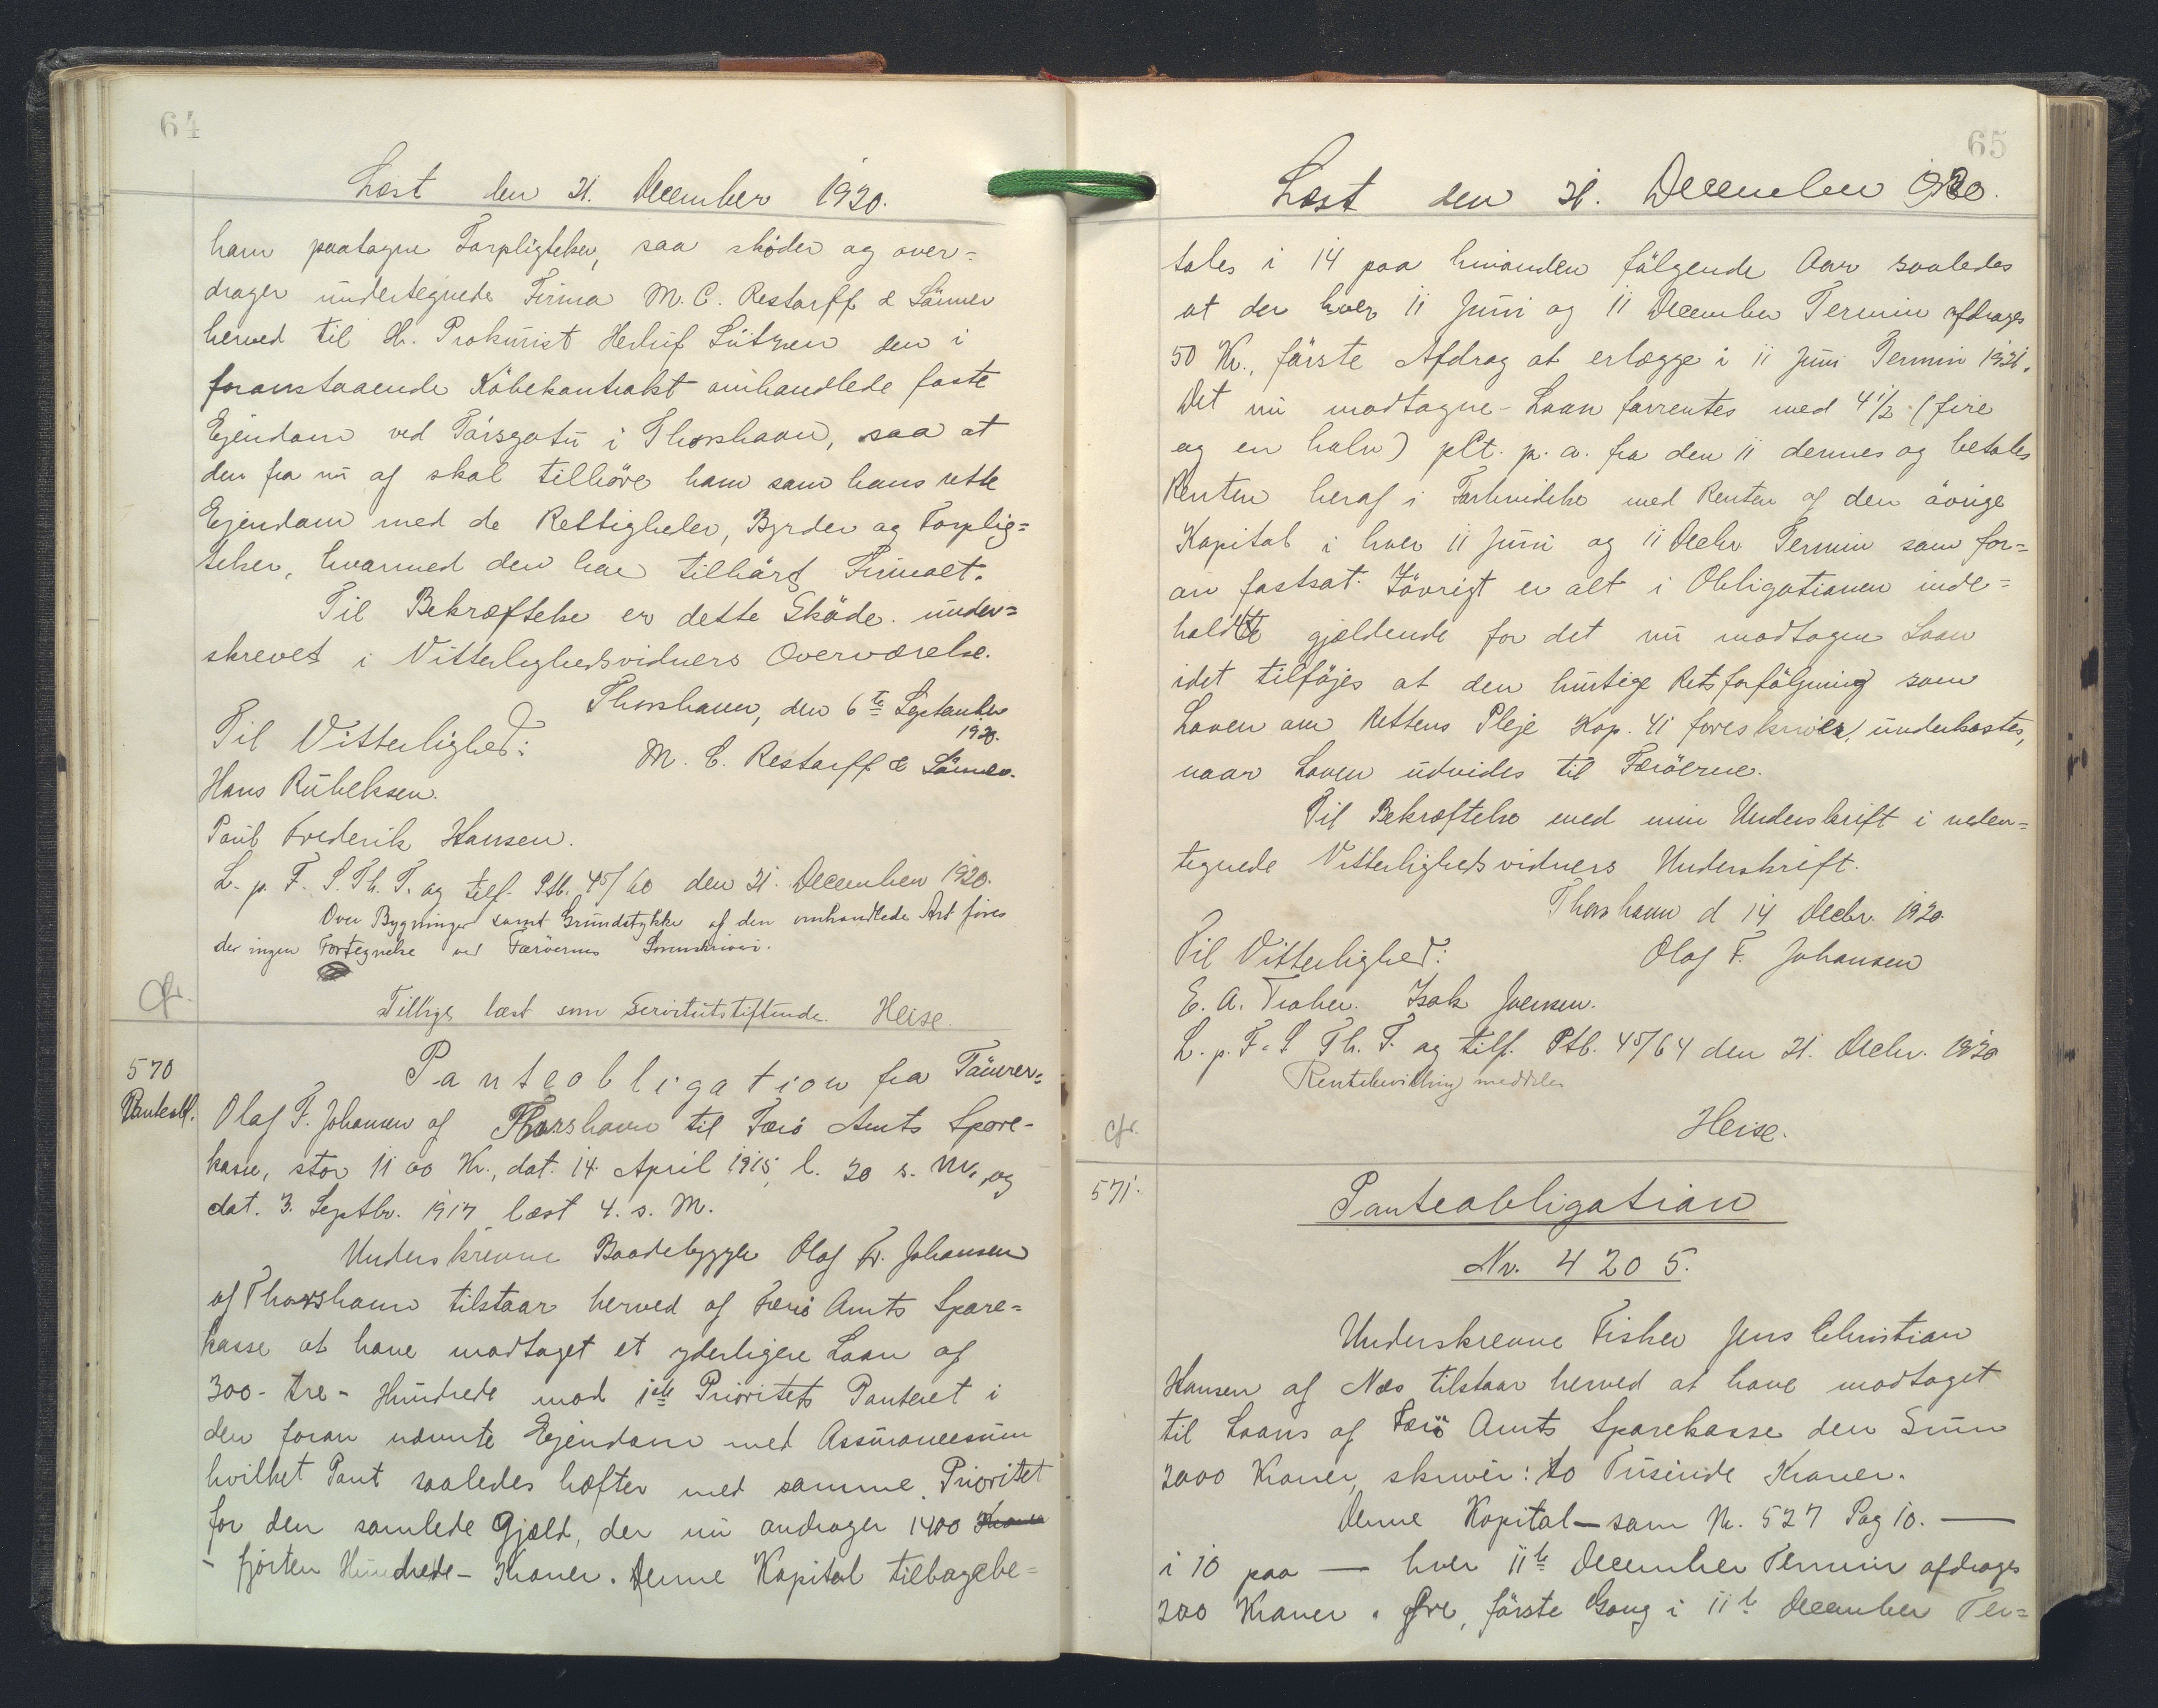 64
Læst den 21. December 1920.
ham paatagne Forpligtelser, saa skøder og over-
drager undertegnede Firma M. C. Restorff & Sönner
herved til Hr. Prokurist Herluf Lützen den i
foranstaaende Köbekontrakt omhandlede faste
Ejendom ved Tórsgøtu i Thorshavn, saa at
den fra nu af skal tilhöre ham som hans rette
Ejendom med de Rettigheder, Byrder og Forplig=
telser, hvormed den har tilhört Firmaet.
Til Bekræftelse er dette Sköde under=
skrevet i Vitterlighedsvidners Overværelse.
Thorshavn, den 6te September
1920.
Til Vitterlighed:
M. C. Restorff & Sönner.
Hans Rubeksen.
Poul Frederik Hansen.
L. p. F. S. Th. T. og tilf. Ptb. 45/60 den 21. December 1920.
Over Bygninger samt Grundstykke af den omhandlede Art föres
der ingen Fortegnelse ved Færöernes Sorenskriveri.
Tillige læst som Servitutstiftende. Heise.
cfr.
570
Panteobl.
Panteobligation fra Tömrer=
Olaf F. Johansen af Thorshavn til Færö Amts Spare-
kasse, stor 1100 Kr., dat. 14. April 1915, l. 20 s. M., og
dat. 3. Septbr. 1917 læst 4. s. M.
Underskrevne Baadebygger Olaf Fr. Johansen
af Thorshavn tilstaar herved af Færö Amts Spare=
kasse at have modtaget et yderligere Laan af
300 - tre - Hundrede mod 1ste Prioritets Panteret i
den foran nævnte Ejendom med Assurancesum
hvilket Pant saaledes hæfter med samme Prioritet
for den samlede Gjæld, der nu andrager 1400 Kroner
- fjorten Hundrede - Kroner. Denne Kapital tilbagebe=
65
Læst den 21. December 1920.
tales i 14 paa hinanden fölgende Aar saaledes
at der hver 11 Juni og 11 December Termin afdrages
50 Kr., förste Afdrag at erlægge i 11 Juni Termin 1921.
Det nu modtagne Laan forrentes med 4 1/2 (fire
og en halv) pCt. p. a. fra den 11 dennes og betales
Renten heraf i Forbindelse med Renten af den övrige
Kapital i hver 11 Juni og 11 Decbr Termin som for=
an fastsat. Iövrigt er alt i Obligationen inde=
holdte gjældende for det nu modtagne Laan
idet tilföjes at den hurtige Retsforfölgning som
Loven om Rettens Pleje Kap. 41 foreskriver, underkastes,
naar Loven udvides til Færöerne.
Til Bekræftelse med min Underskrift i neden=
tegnede Vitterlighedsvidners Underskrift.
Thorshavn d 14 Decbr. 1920.
Til Vitterlighed:
Olaf F. Johansen
E. A. Isak Joensen.
L. p. F. S Th. T. og tilf. Ptb. 45/64 den 21. Decbr. 1920
Rentebevilling meddeles
Heise.
cfr.
571.
Panteobligation
Nr. 4205.
Underskrevne Fisker Jens Christian
Hansen af Næs tilstaar herved at have modtaget
til Laans af Færö Amts Sparekasse den Sum
2000 Kroner, skriver: to Tusinde Kroner.
Denne Kapital — som Nr. 527 Pag 10. —
i 10 paa — hver 11te December Termin afdrages
200 Kroner . Øre, förste Gang i 11te December Ter=